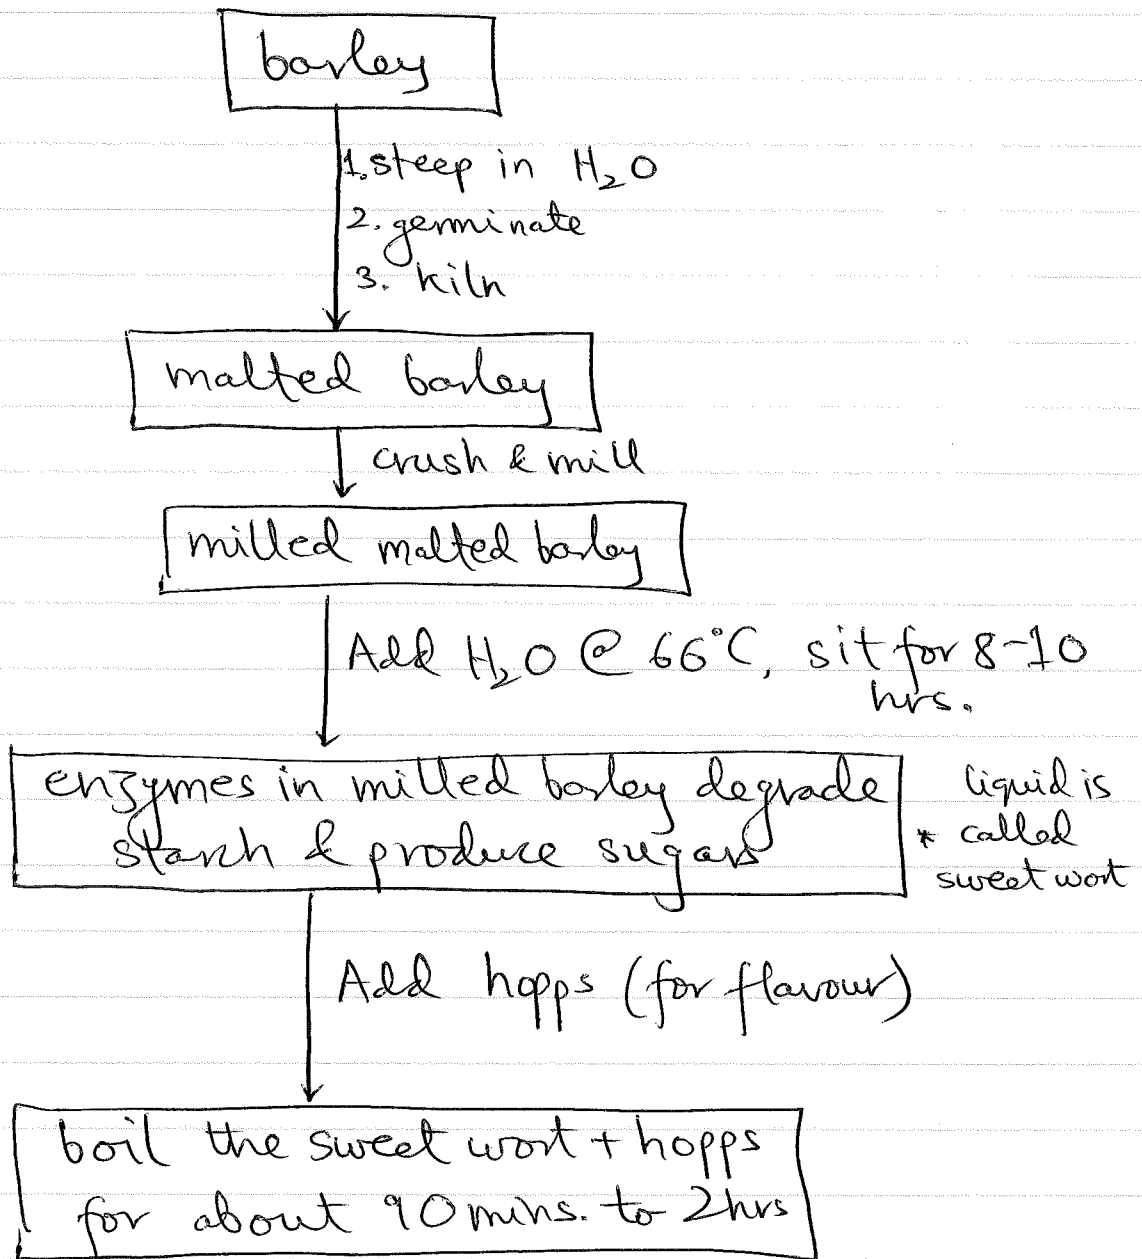 barley
1. steep in H₂O
2. germinate
3. kiln
malted barley
crush & mill
milled malted barley
Add H₂O @ 66°C, sit for 8-10
hrs.
enzymes in milled barley degrade
starch & produce sugars
liquid is
* called
sweet wort
Add hopps (for flavour)
boil the sweet wort + hopps
for about 90 mins. to 2hrs